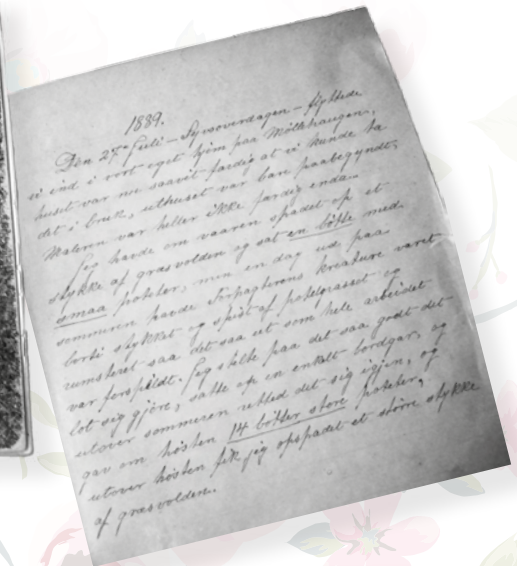 1889.
Den 27de Juli – Syvsoverdagen – flyttede
vi ind i vort eget hjem paa Möllehaugen,
huset var nu saavidt færdig at vi kunde ta
det i bruk, uthuset var bare paabegyndt,
Maleren var heller ikke færdig enda.
Jeg havde om vaaren spadet op et
stykke af græsvolden og sat en bötte med
smaa poteter, men en dag ud paa
sommeren havde Forpagterens kreature været
borti stykket og spist af potetgrasset og
rumsteret saa det saa ut som hele arbeidet
var forspildt. Jeg stelte paa det saa godt det
lot sig gjöre, satte op en enkelt bordgar, og
utover sommeren retted det sig igjen, og
gav om hösten 14 bötter store poteter,
utover hösten fik jeg opspadet et större stykke
af græsvolden.